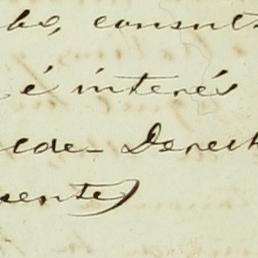 consult
é interés
cede- Derech
sente)